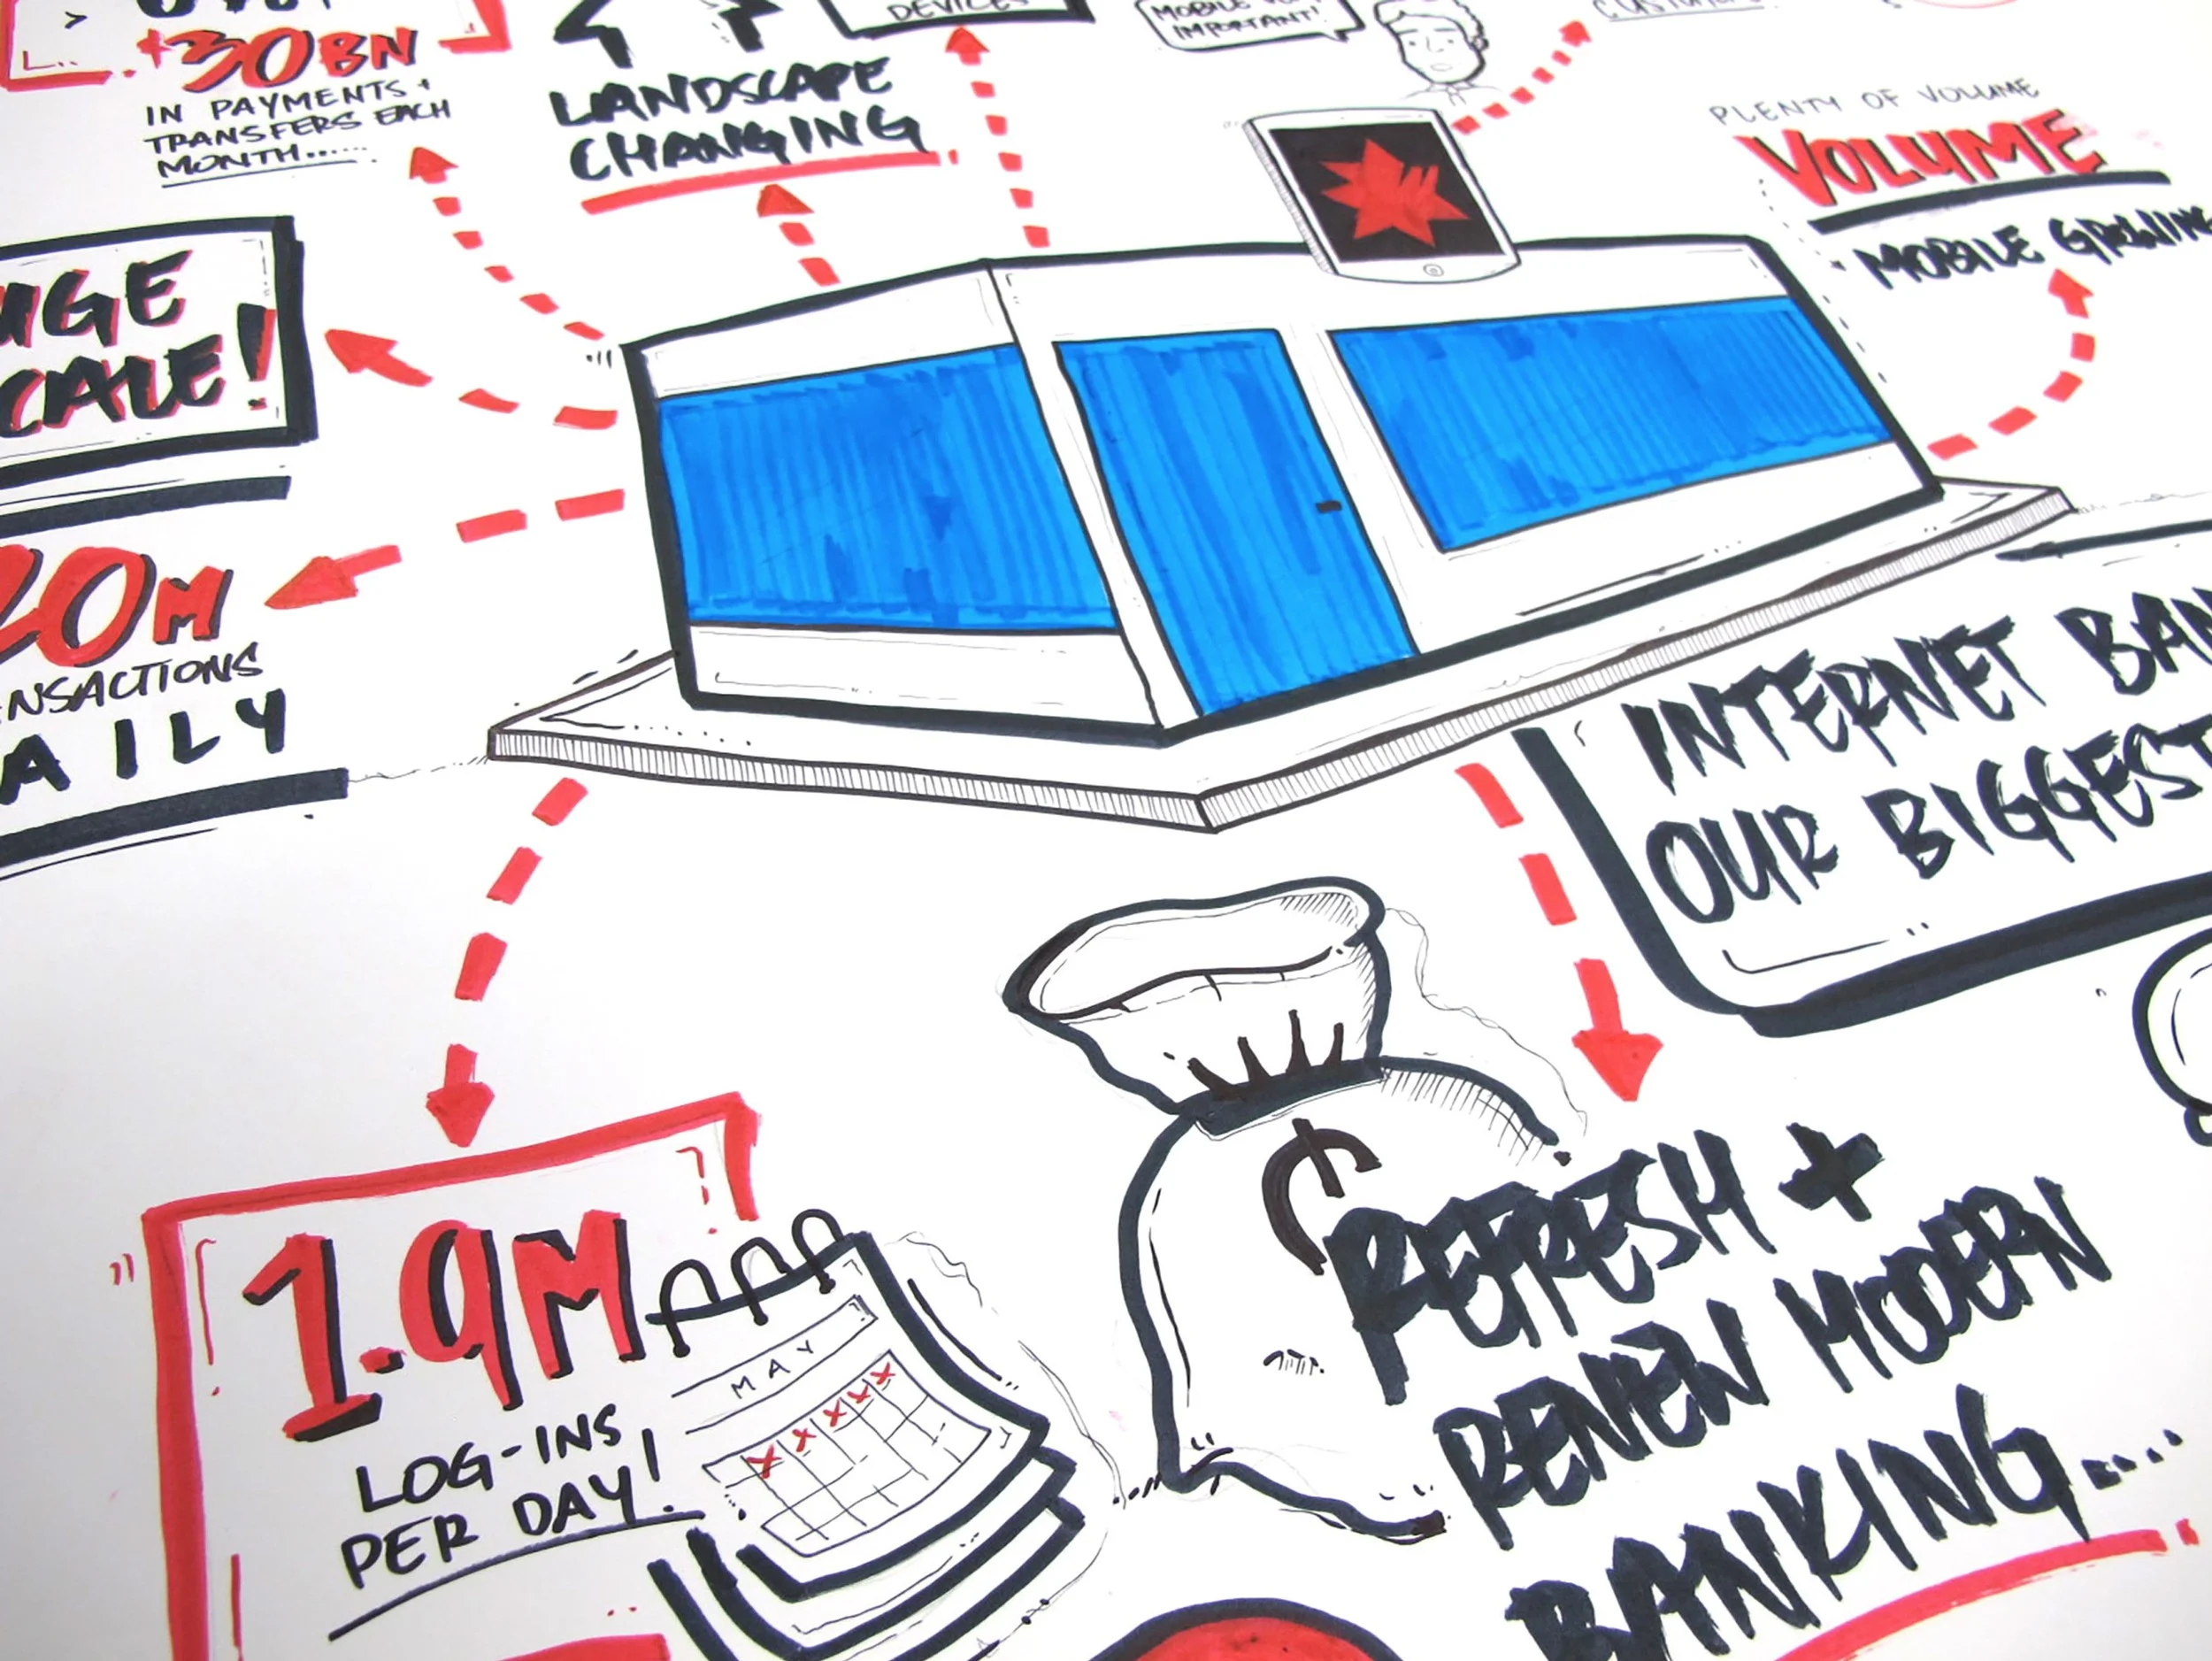 +30BN
IN PAYMENTS +
TRANSFERS EACH
MONTH......
LANDSCAPE
CHANGING
DEVICES
IMPORTANT!
PLENTY OF VOLUME
VOLUME
• MOBILE GROWING
UGE
CALE!
20M
NSACTIONS
AILY
INTERNET BAN
OUR BIGGEST
1.9M
LOG-INS
PER DAY!
MAY
REFRESH +
RENEW MODERN
BANKING....